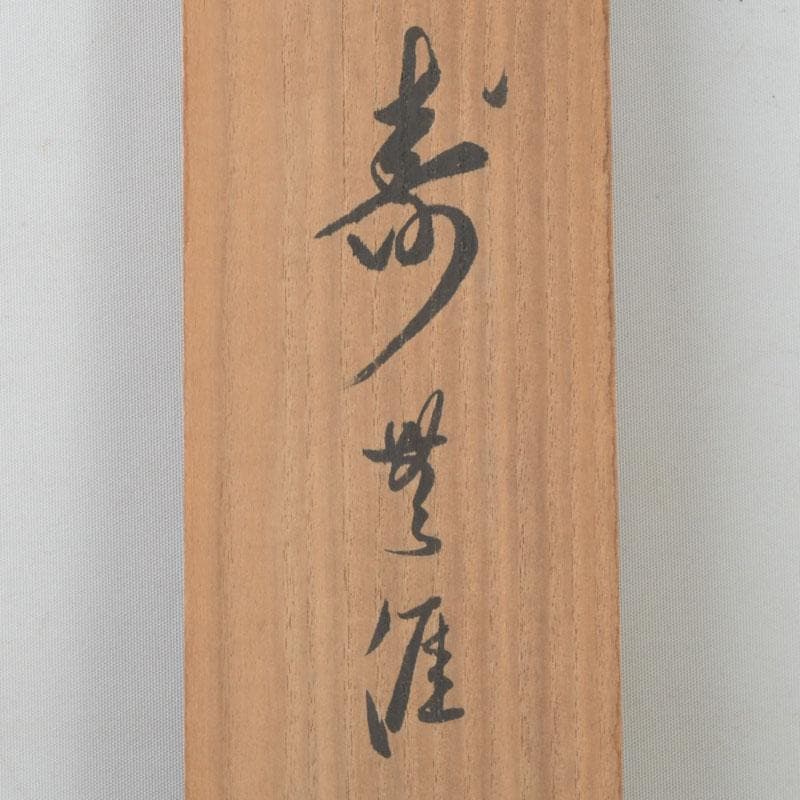 寿無涯